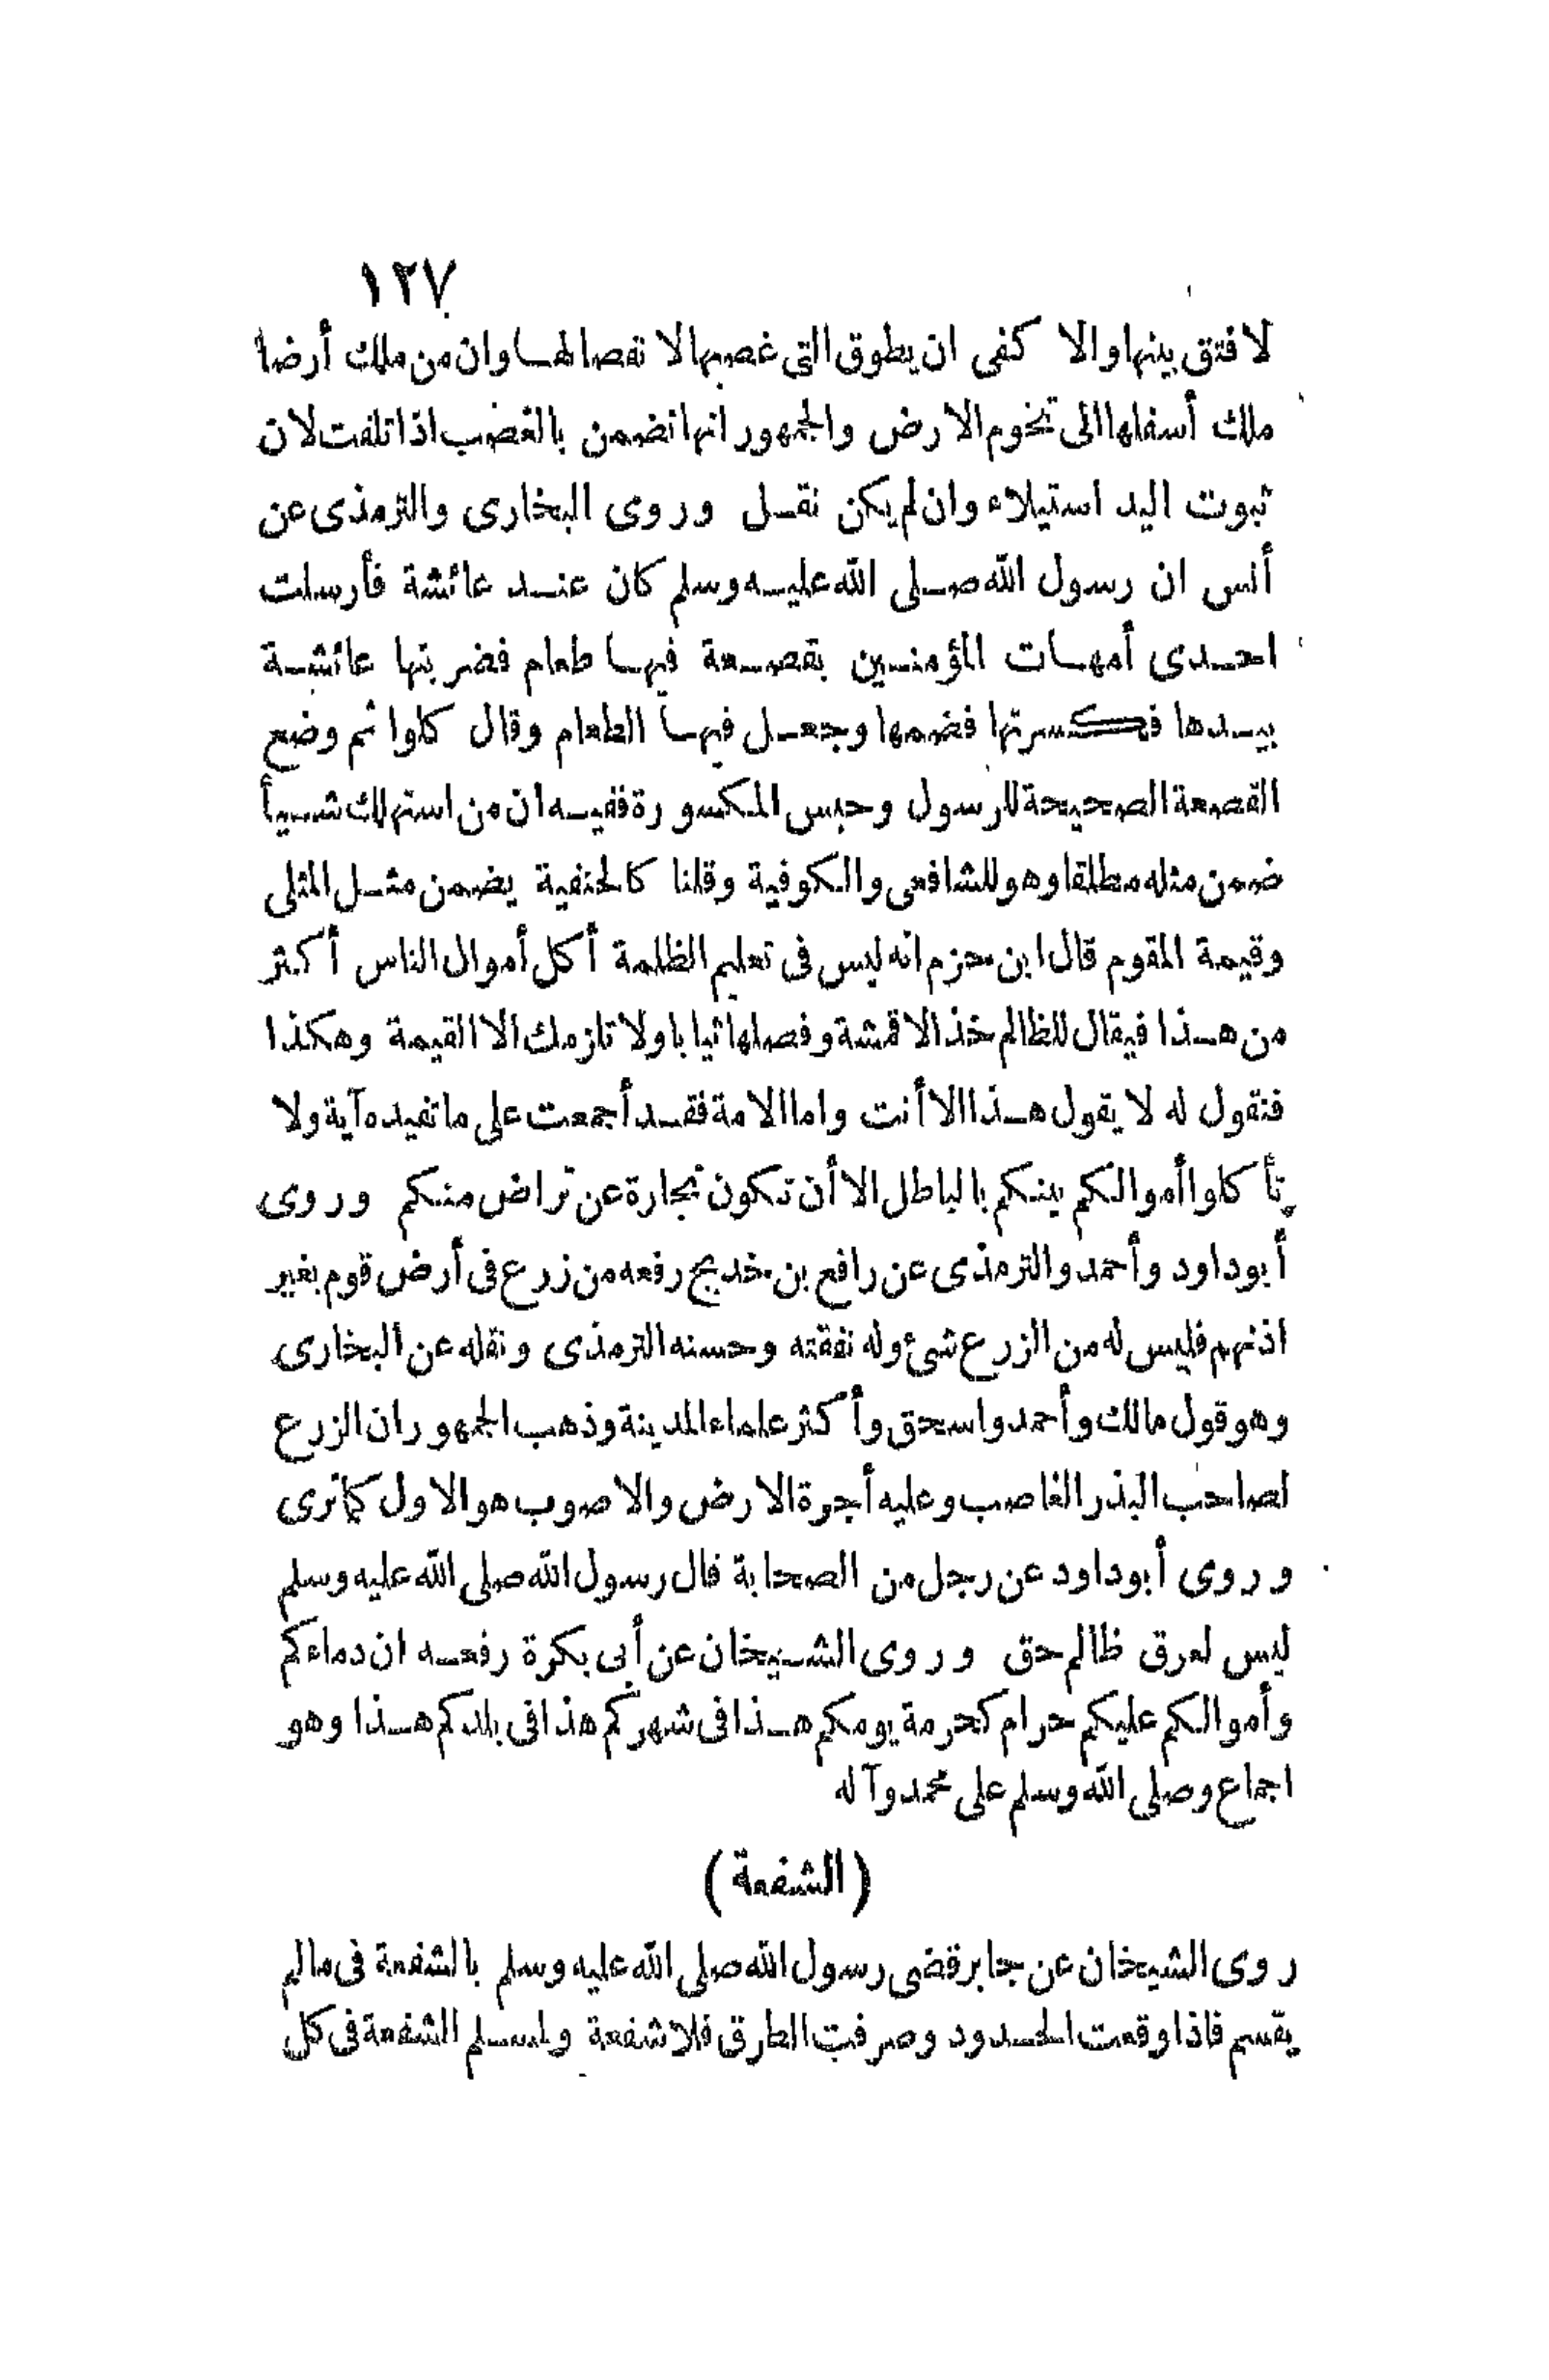 ١٢٧
لا فتق بينها والا كفى ان يطوق التى غصبها لا تفصالها وان من ملك أرضا
ملك أسفلها الى تخوم الارض والجمهور انها تضمن بالغصب اذا تلفت لان
ثبوت اليد استيلاء وان لم يكن نقل وروى البخارى والترمذى عن
أنس ان رسول الله صلى الله عليه وسلم كان عند عائشة فأرسلت
احدى أمهات المؤمنين بقصعة فيها طعام فضربتها عائشة
بيدها فكسرتها فضمها وجعل فيها الطعام وقال كلوا ثم وضع
القصعة الصحيحة للرسول وحبس المكسورة ففيه ان من استهلك شيأ
ضمن مثله مطلقا وهو للشافعى والكوفية وقلنا كالحنفية يضمن مثل المثلى
وقيمة المقوم قال ابن حزم انه ليس فى تعليم الظلمة أكل أموال الناس أكثر
من هذا فيقال للظالم خذ الاقمشة وفصلها ثيابا ولا تلزمك الا القيمة وهكذا
فنقول له لا يقول هذا الا أنت واما الامة فقد أجمعت على ما تفيده آية ولا
تأكلوا أموالكم بينكم بالباطل الا أن تكون تجارة عن تراض منكم وروى
أبو داود وأحمد والترمذى عن رافع بن خديج رفعه من زرع فى أرض قوم بغير
اذنهم فليس له من الزرع شئ وله نفقته وحسنه الترمذى ونقله عن البخارى
وهو قول مالك وأحمد واسحق وأكثر علماء المدينة وذهب الجمهور ان الزرع
لصاحب البذر الغاصب وعليه أجرة الارض والاصوب هو الاول كما ترى
وروى أبو داود عن رجل من الصحابة قال رسول الله صلى الله عليه وسلم
ليس لعرق ظالم حق وروى الشيخان عن أبى بكرة رفعه ان دماءكم
وأموالكم عليكم حرام كحرمة يومكم هذا فى شهركم هذا فى بلدكم هذا وهو
اجماع وصلى الله وسلم على محمد وآله
(الشفعة)
روى الشيخان عن جابر قضى رسول الله صلى الله عليه وسلم بالشفعة فى مالم
يقسم فاذا وقعت الحدود وصرفت الطرق فلا شفعة ولمسلم الشفعة فى كل